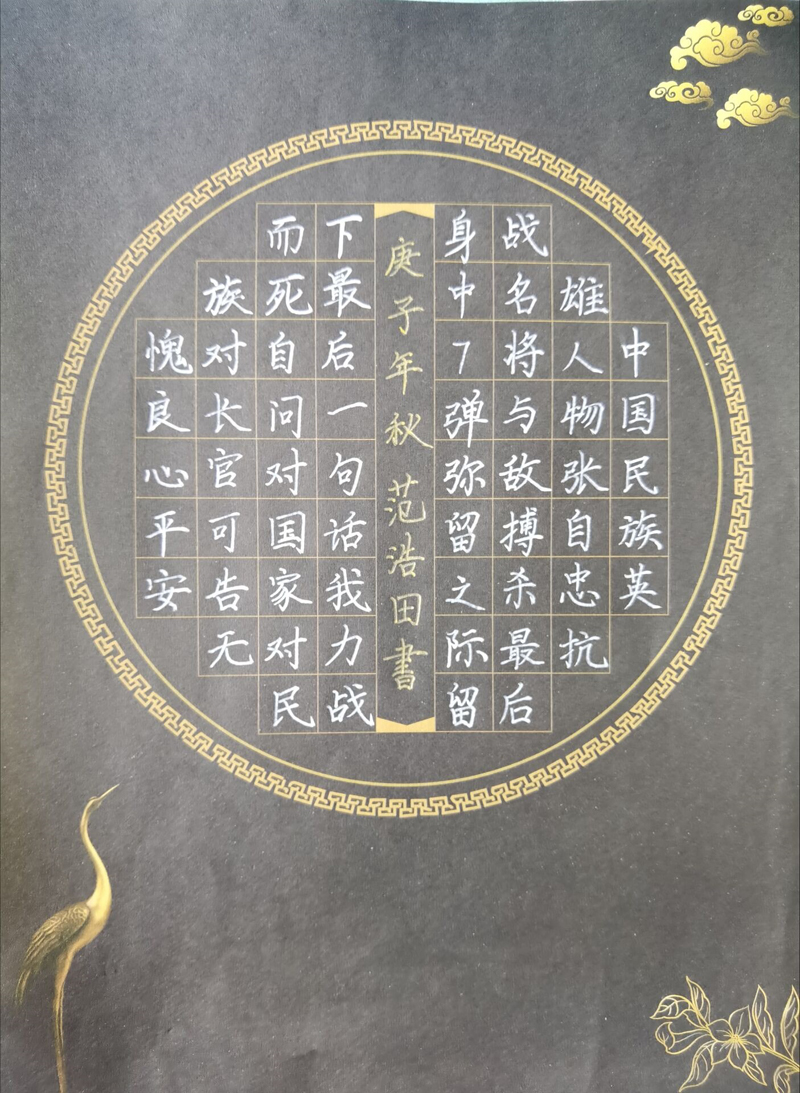 中国民族英
雄人物张自忠抗
战名将与敌搏杀最后
身中7弹弥留之际留
下最后一句话我力战
而死自问对国家对民
族对长官可告无
愧良心平安
庚子年秋范浩田書